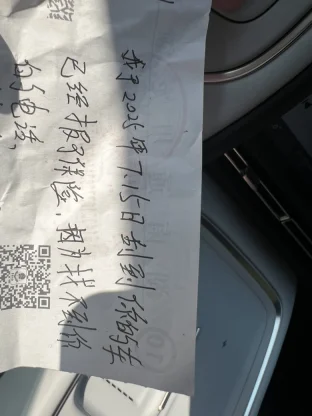 我于2025年7.15日刮到你的车
已经报了保险，期为找不到你
的电话，